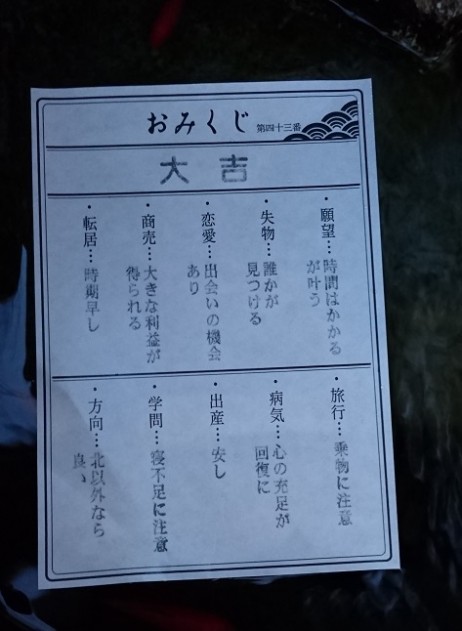 おみくじ 第四十三番
大吉
・願望…時間はかかる
が叶う
・失物…誰かが
見つける
・恋愛…出会いの機会
あり
・商売…大きな利益が
得られる
・転居…時期早し
・旅行…乗物に注意
・病気…心の充足が
回復に
・出産…安し
・学問…寝不足に注意
・方向…北以外なら
良い